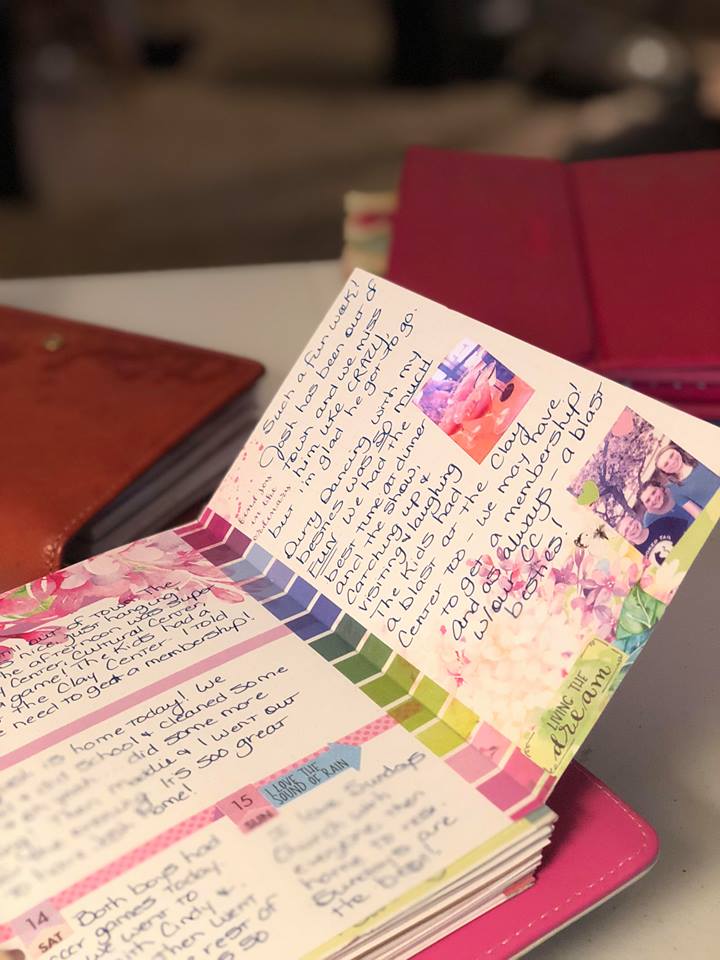 Such a fun week!
Josh has been out of
town and we miss
him like CRAZY!
but i'm glad he got to go.
Dirty Dancing with my
besties was SO MUCH
FUN! we had the
best time at dinner
and the show,
catching up &
visiting & laughing
The Kids had
a blast at the Clay
Center too - we may have
to get a membership!
And as always - a blast
w/our CC
besties!
LIVING THE
dream
out of town. The
just hanging
the afternoon was super
Center. Cultural Center,
a game! The Kids had a
the Clay Center. I told
need to get a membership!
is home today! We
School & cleaned some
did some more
& I went out
It's soo great
home!
15
SUN
I LOVE THE
SOUND OF RAIN
I love Sundays
Church with
everyone, then
home to rest.
Sundays are
the best!
14
SAT
Both boys had
games today.
we went to
with Cindy &
then went
rest of
so